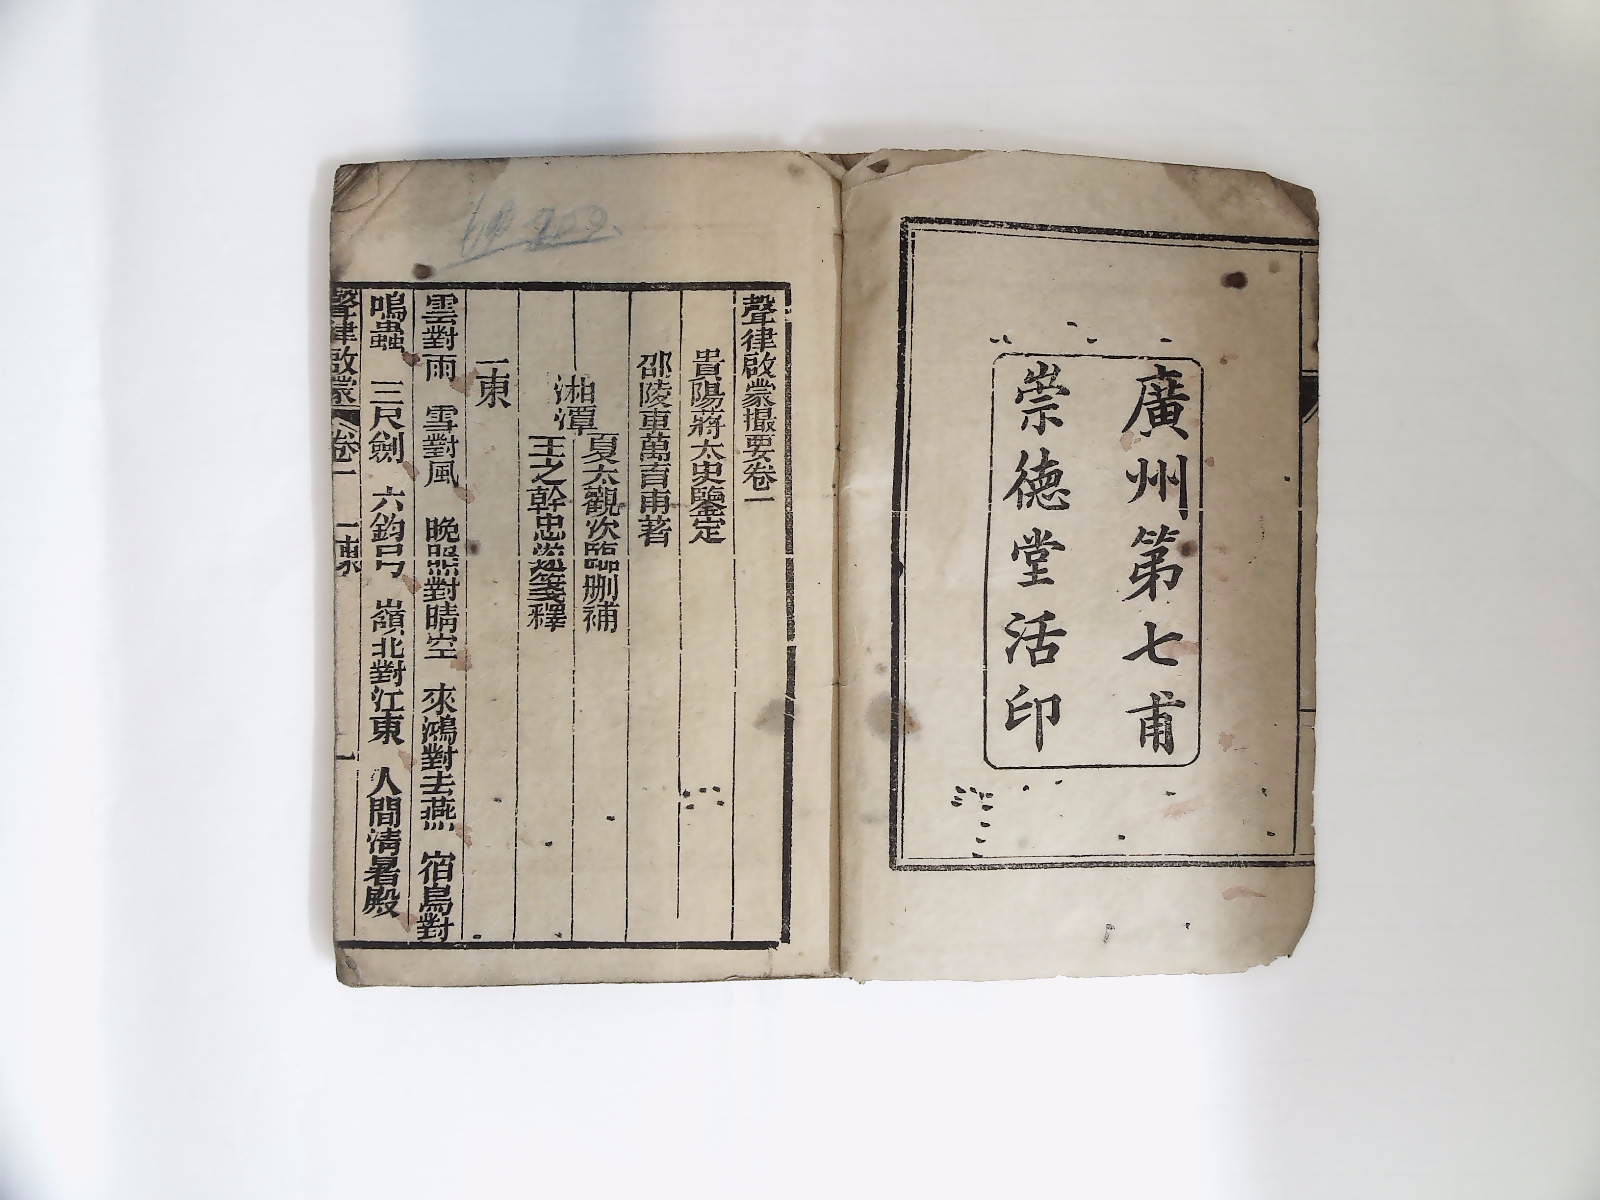 廣州第七甫
崇德堂活印
聲律啟蒙撮要卷一
貴陽蔣太史鑒定
邵陵車萬育甫著
湘潭
夏大觀次臨刪補
王之幹忠遊箋釋
一東
雲對雨 雪對風 晚照對晴空 來鴻對去燕 宿鳥對
鳴蟲 三尺劍 六鈞弓 嶺北對江東 人間清暑殿
聲律啟蒙 卷一 一東 一